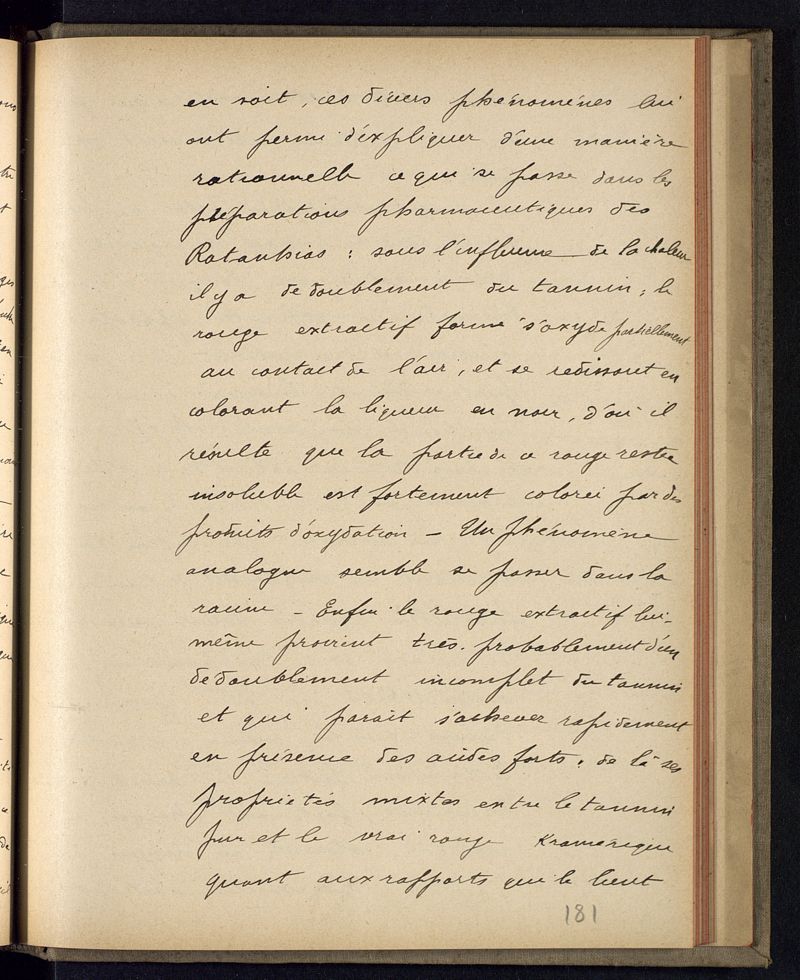 en soit, ces divers phénomènes lui
ont permi d'éxpliquer d'une manière
rationnelle ce qui se passe dans les
préparations pharmaceutiques des
Ratanhias : sous l'influence de la chaleur
il y a dedoublement du tannin ; le
rouge extractif formé s'oxyde partiellement
au contact de l'air, et se redissout en
colorant la liqueur en noir, d'où il
résulte que la partie de ce rouge restée
insoluble est fortement colorée par des
produits d'oxydation — Un phénomène
analogue semble se passer dans la
racine — Enfin le rouge extractif lui-
même provient très probablement d'un
dedoublement incomplet du tannin
et qui parait s'achever rapidement
en présence des acides forts, de là ses
propriétés mixtes entre le tannin
pur et le vrai rouge Kramérique
quant aux rapports qui le lient
181